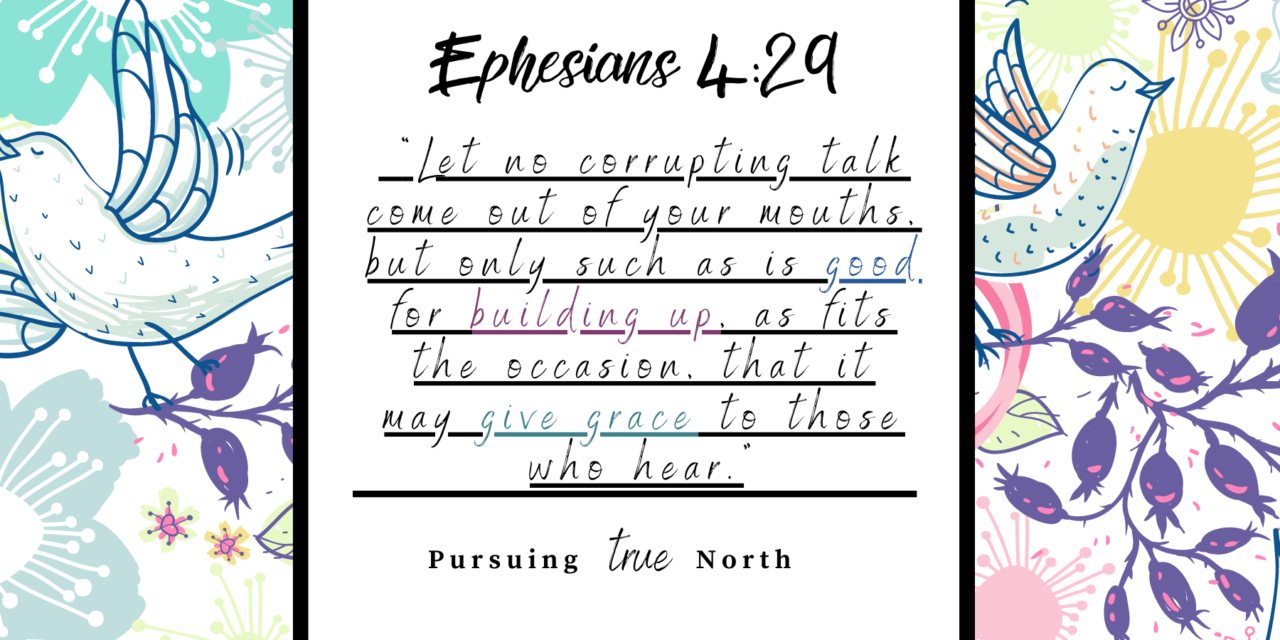 Ephesians 4:29
"Let no corrupting talk
come out of your mouths,
but only such as is good,
for building up, as fits
the occasion, that it
may give grace to those
who hear."
Pursuing true North